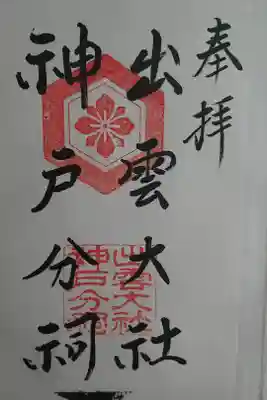 奉拝
出雲大社
神戸分祠
出雲大社
神戸分祠